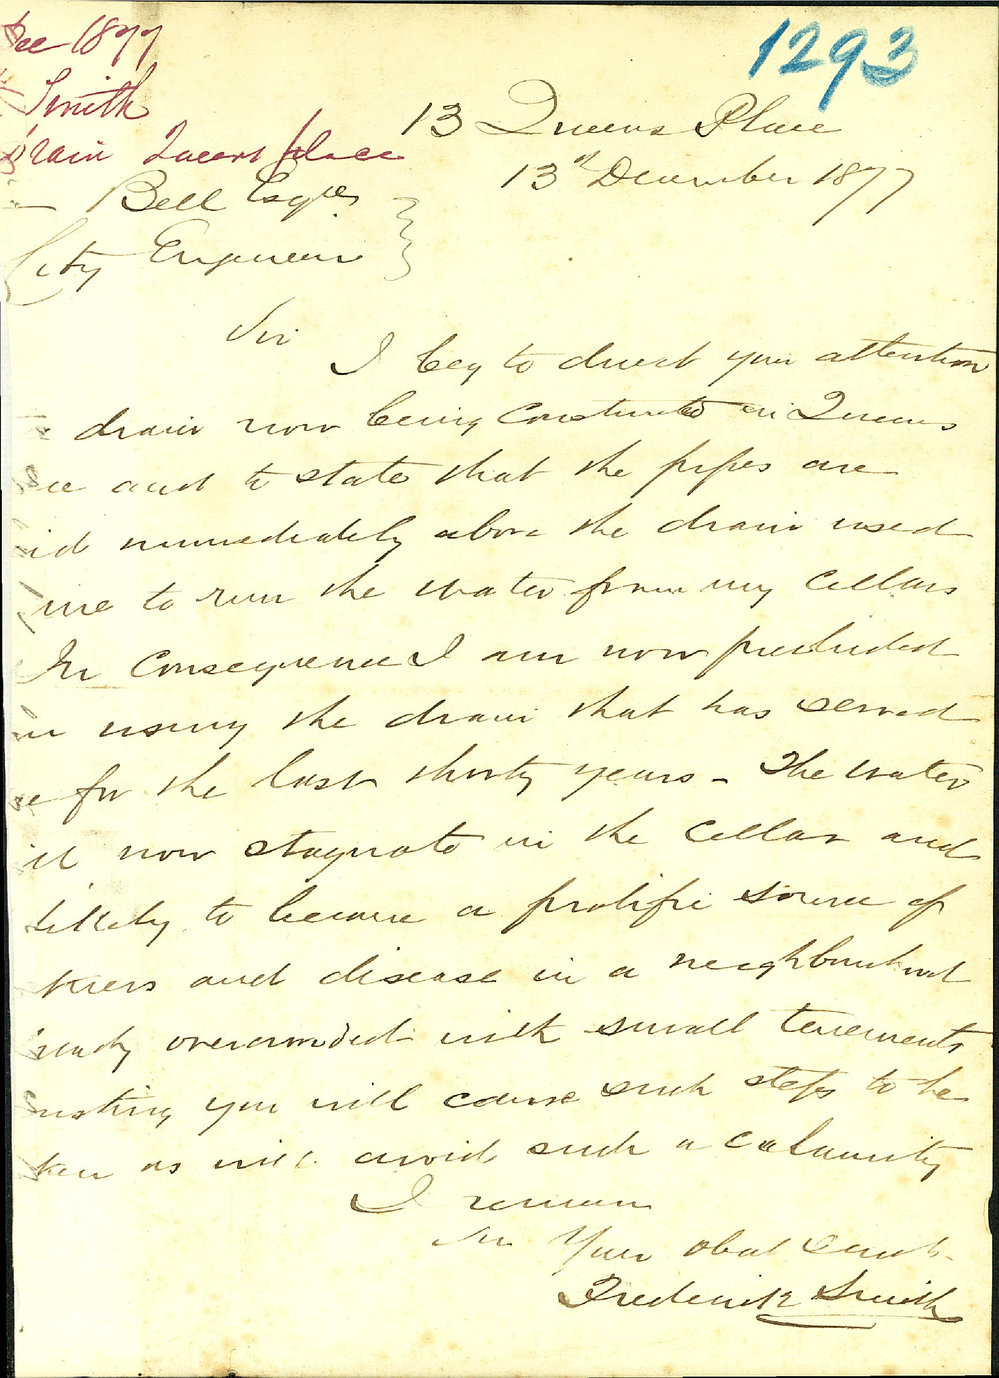 1293
Dec 1877
Smith
Drain Queens place
13 Queens Place
13th December 1877
Bell Esqre
City Engineer
Sir
I beg to direct your attention
drain now being constructed in Queens
ce and to state that the pipes are
id immediately above the drain used
me to run the water from my cellars
In consequence I am now precluded
using the drain that has served
e for the last thirty years - The water
ill now stagnate in the cellar and
likely to become a prolific source of
and disease in a neighbourhood
ready overcrowded with small tenements
rusting you will cause such steps to be
ken as will avoid such a calamity
I remain
Sir Your obdt servt.
Frederick Smith